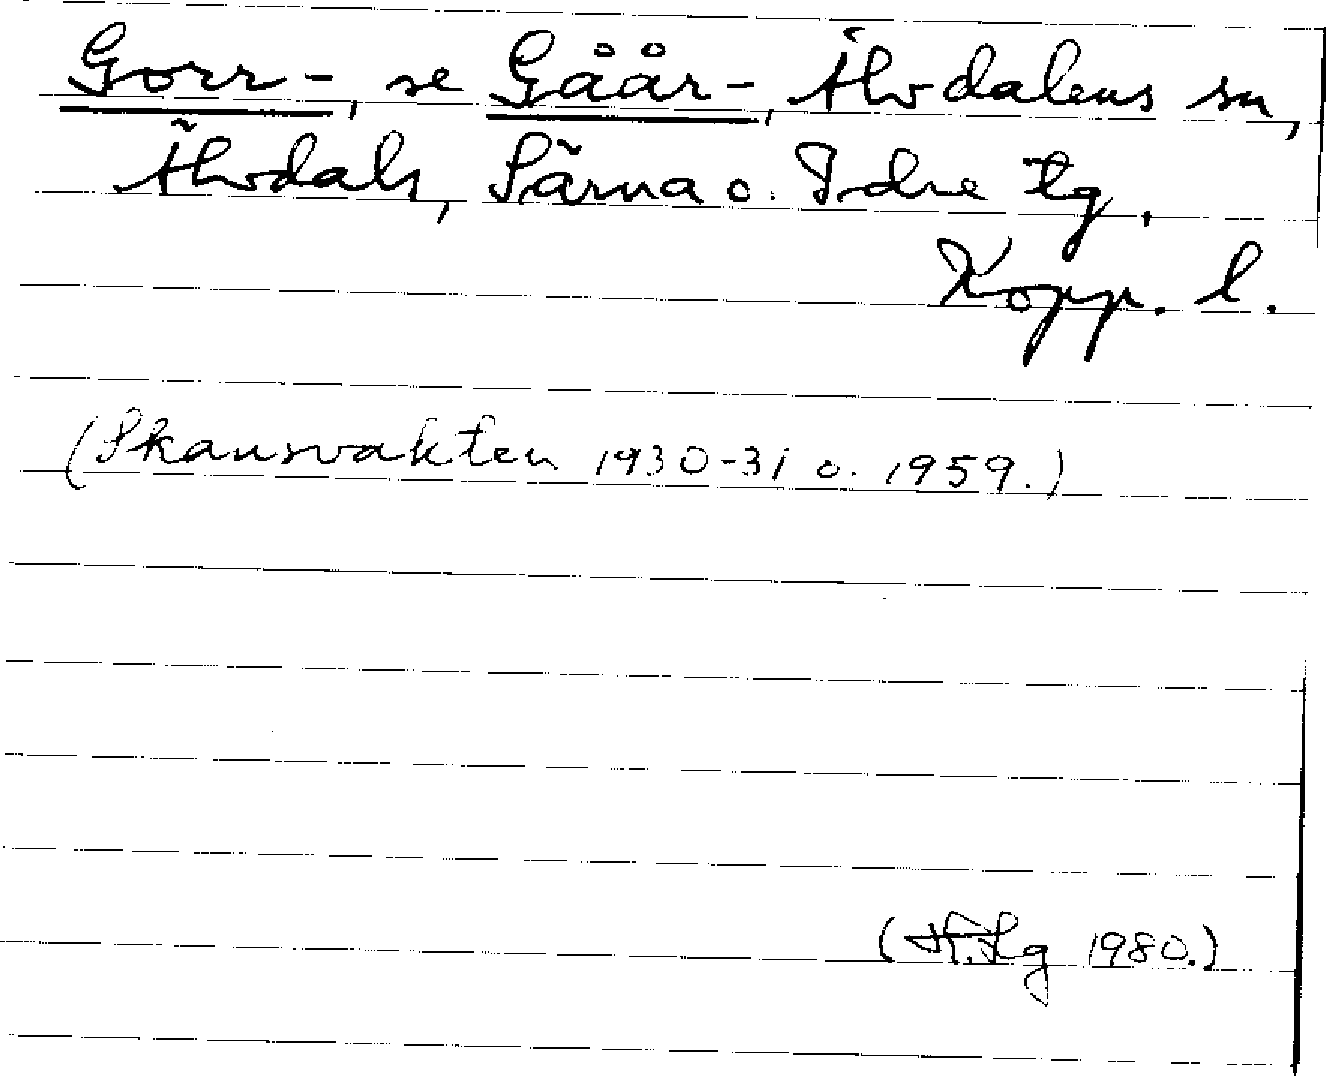 Gorr-, se Gåår-, Älvdalens sn,
Älvdals, Särna o. Idre tg,
Kopp. l.
(Skansvakten 1930-31 o. 1959.)
(H.Lg 1980.)